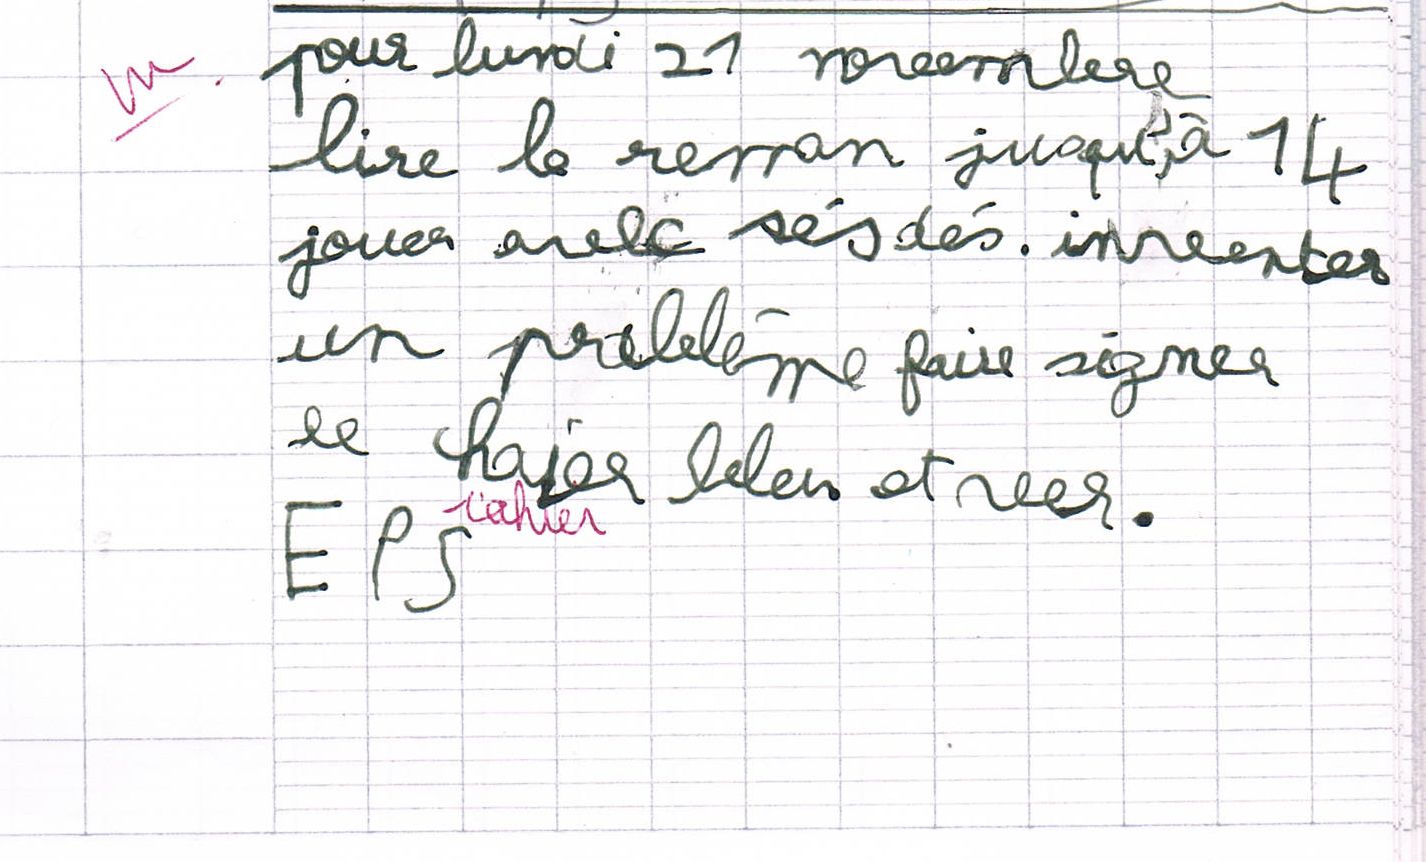 vu.
pour lundi 21 novembre
lire le roman jusqu'à 14
jouer avec sés dés. inventer
un problème faire signer
le hajer bleu et ver.
cahier
EPS